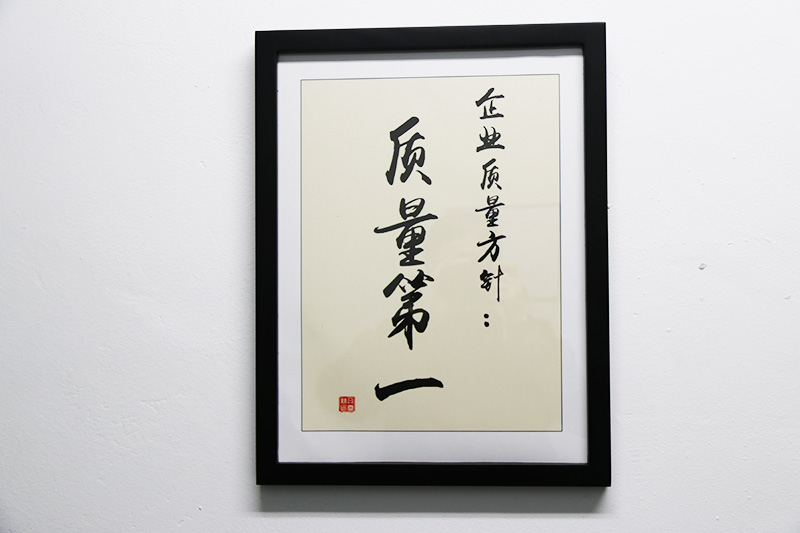 企业质量方针：
质量第一